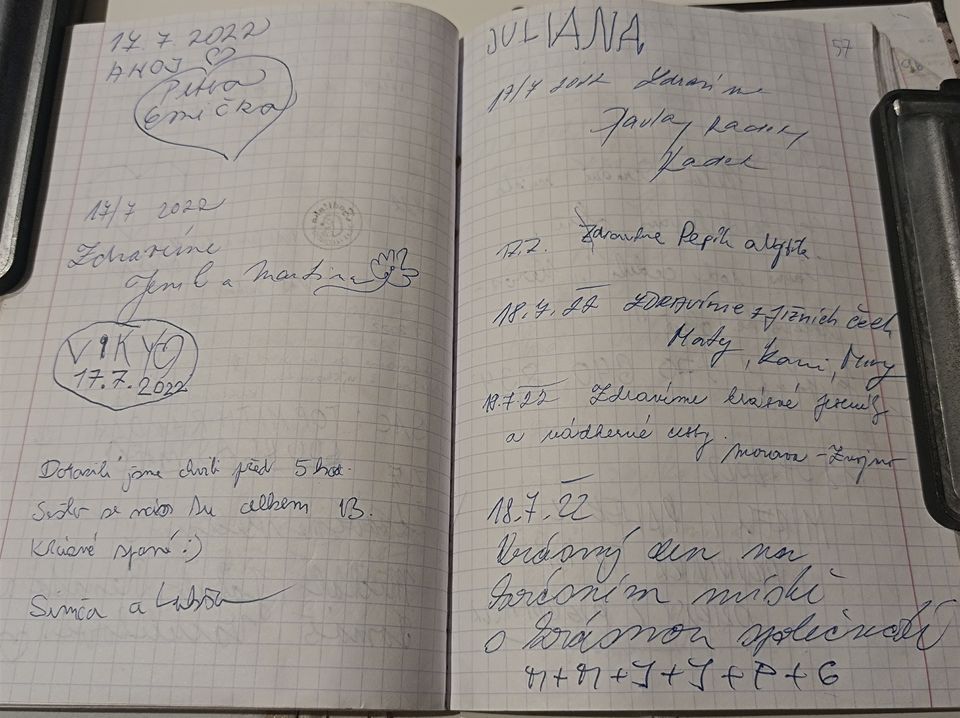 17. 7. 2022
AHOJ
Petra
Emička
17/7 2022
Zdravíme
a Martina
VIKY
17.7.2022
jsme chvíli před 5 hod.
se nás tu celkem 13.
Krásné spaní :)
Simča a
JULIANA
57
17/7 2022 Zdraví me
Radek
17.7. Zdravíme Pepík a
18.7.22 ZDRAVÍME z Jižních Čech
Maty, Kami,
18.7 22 Zdravíme krásné Jeseníky
a nádherné cesty.
Morava - Znojmo
18.7.22
Krásný den na
krásném místě
s krásnou společností
M+M+J+J+P+G